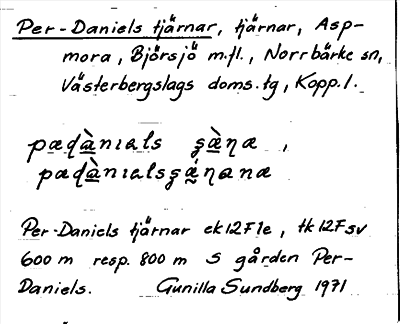 Per-Daniels tjärnar, tjärnar, Asp-
mora, Björsjö m.fl., Norrbärke sn,
Västerbergslags doms.tg, Kopp.l.
Per-Daniels tjärnar ek12F1e, tk12Fsv
600 m resp. 800 m S gården Per-
Daniels. Gunilla Sundberg 1971